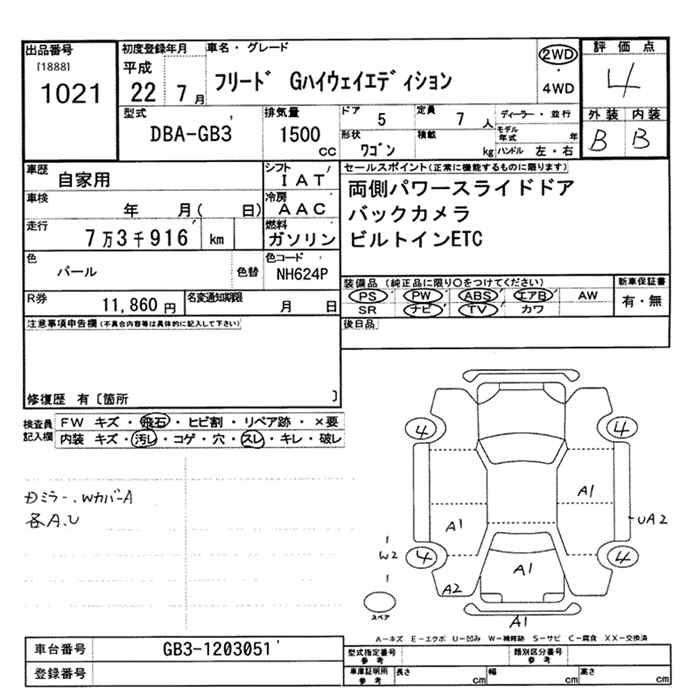 出品番号
[1888]
1021
初度登録年月
平成
22 7月
車名・グレード
フリード Gハイウェイエディション
2WD
・
4WD
評価点
4
外装 内装
B B
型式
DBA-GB3
排気量
1500
cc
ドア 5
定員 7 人
形状 ワゴン
積載 kg
ディーラー・並行
モデル年式 年
ハンドル 左・右
車歴
自家用
シフト
IAT
車検
年 月( 日)
冷房
AAC
走行
7万3千916 km
燃料
ガソリン
色
パール
色替
色コード
NH624P
R券
11,860円
名変通知期限
月 日
セールスポイント(正常に機能するものに限ります)
両側パワースライドドア
バックカメラ
ビルトインETC
装備品 (純正品に限り○をつけてください)
PS PW ABS エアB AW
SR ナビ TV カワ
新車保証書
有・無
後日品
注意事項申告欄(不具合内容等は具体的に記入して下さい)
修復歴 有〔箇所 〕
検査員
記入欄
FW キズ・飛石・ヒビ割・リペア跡・×要
内装 キズ・汚レ・コゲ・穴・スレ・キレ・破レ
ミラー、Wカバ-A
各A.U
4 4
A1
A1
UA2
W2
4 4
A1
A2
スペア
A1
A-キズ E-エクボ U-凹み W-補修跡 S-サビ C-腐食 XX-交換済
車台番号
GB3-1203051
登録番号
型式指定番号
参考
類別区分番号
参考
車庫証明用
参考
長さ cm
幅 cm
高さ cm